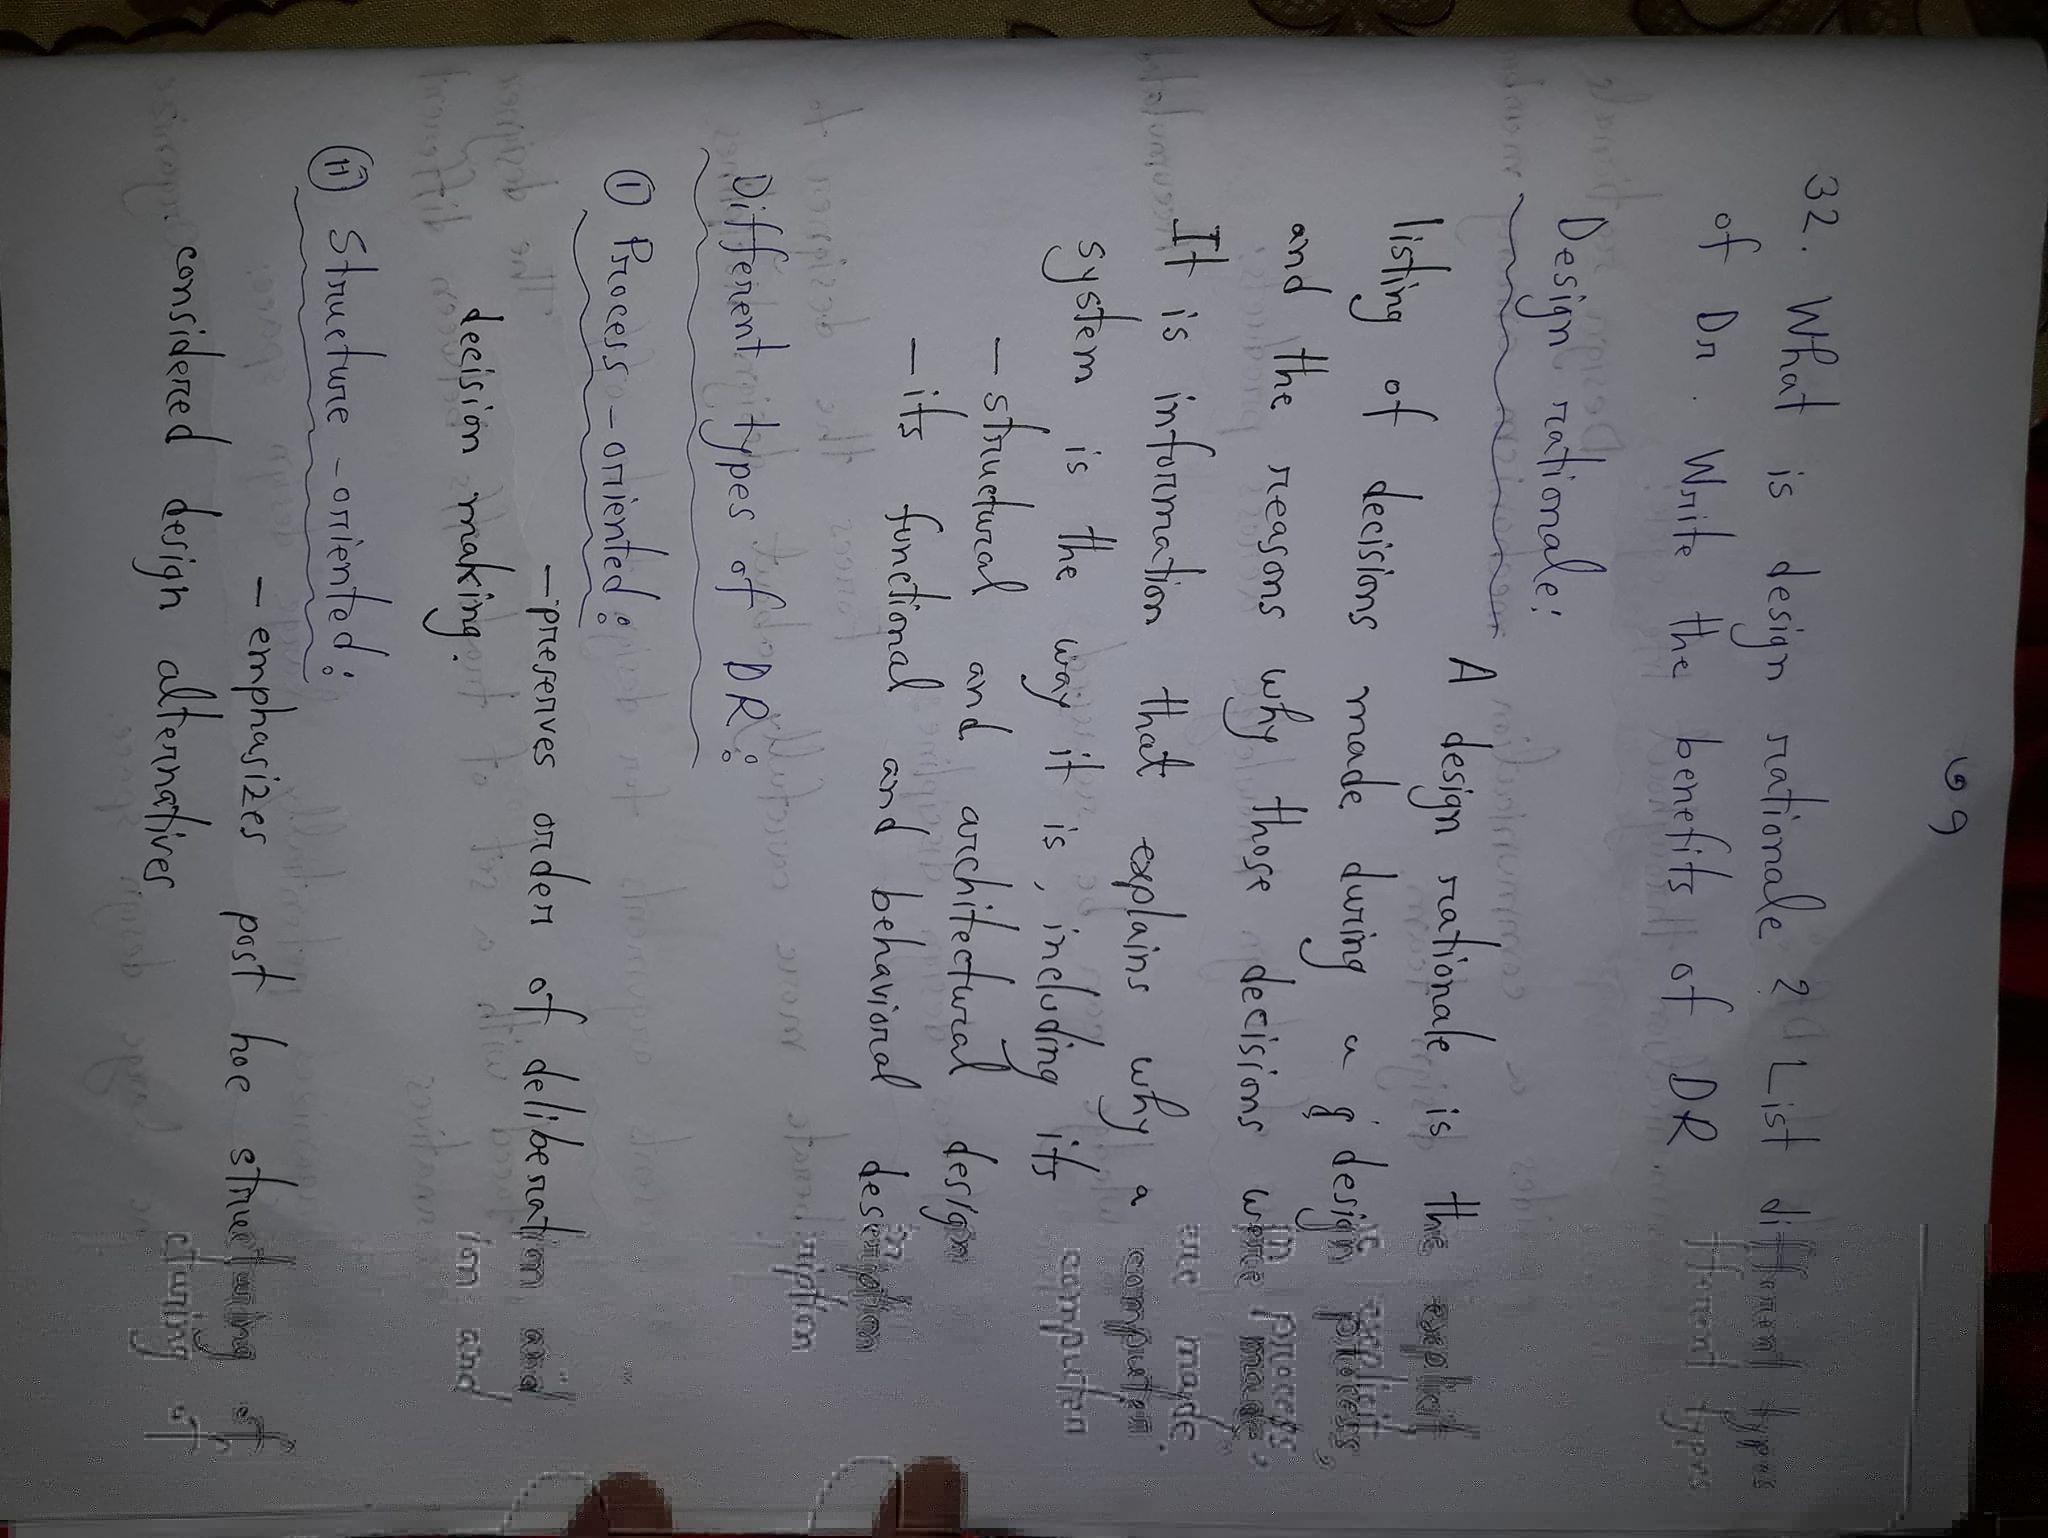 ৩৭
32. What is design rationale? List different types
of Dr. Write the benefits of DR.
Design rationale:
A design rationale is the explicit
listing of decisions made during a design process,
and the reasons why those decisions were made.
It is information that explains why a computer
system is the way it is, including its
- structural and architectural design
- its functional and behavioral description
Different types of DR:
① Process-oriented:
- preserves order of deliberation and
decision making.
ⓘⓘ Structure-oriented:
- emphasizes post hoc structuring of
considered design alternatives.